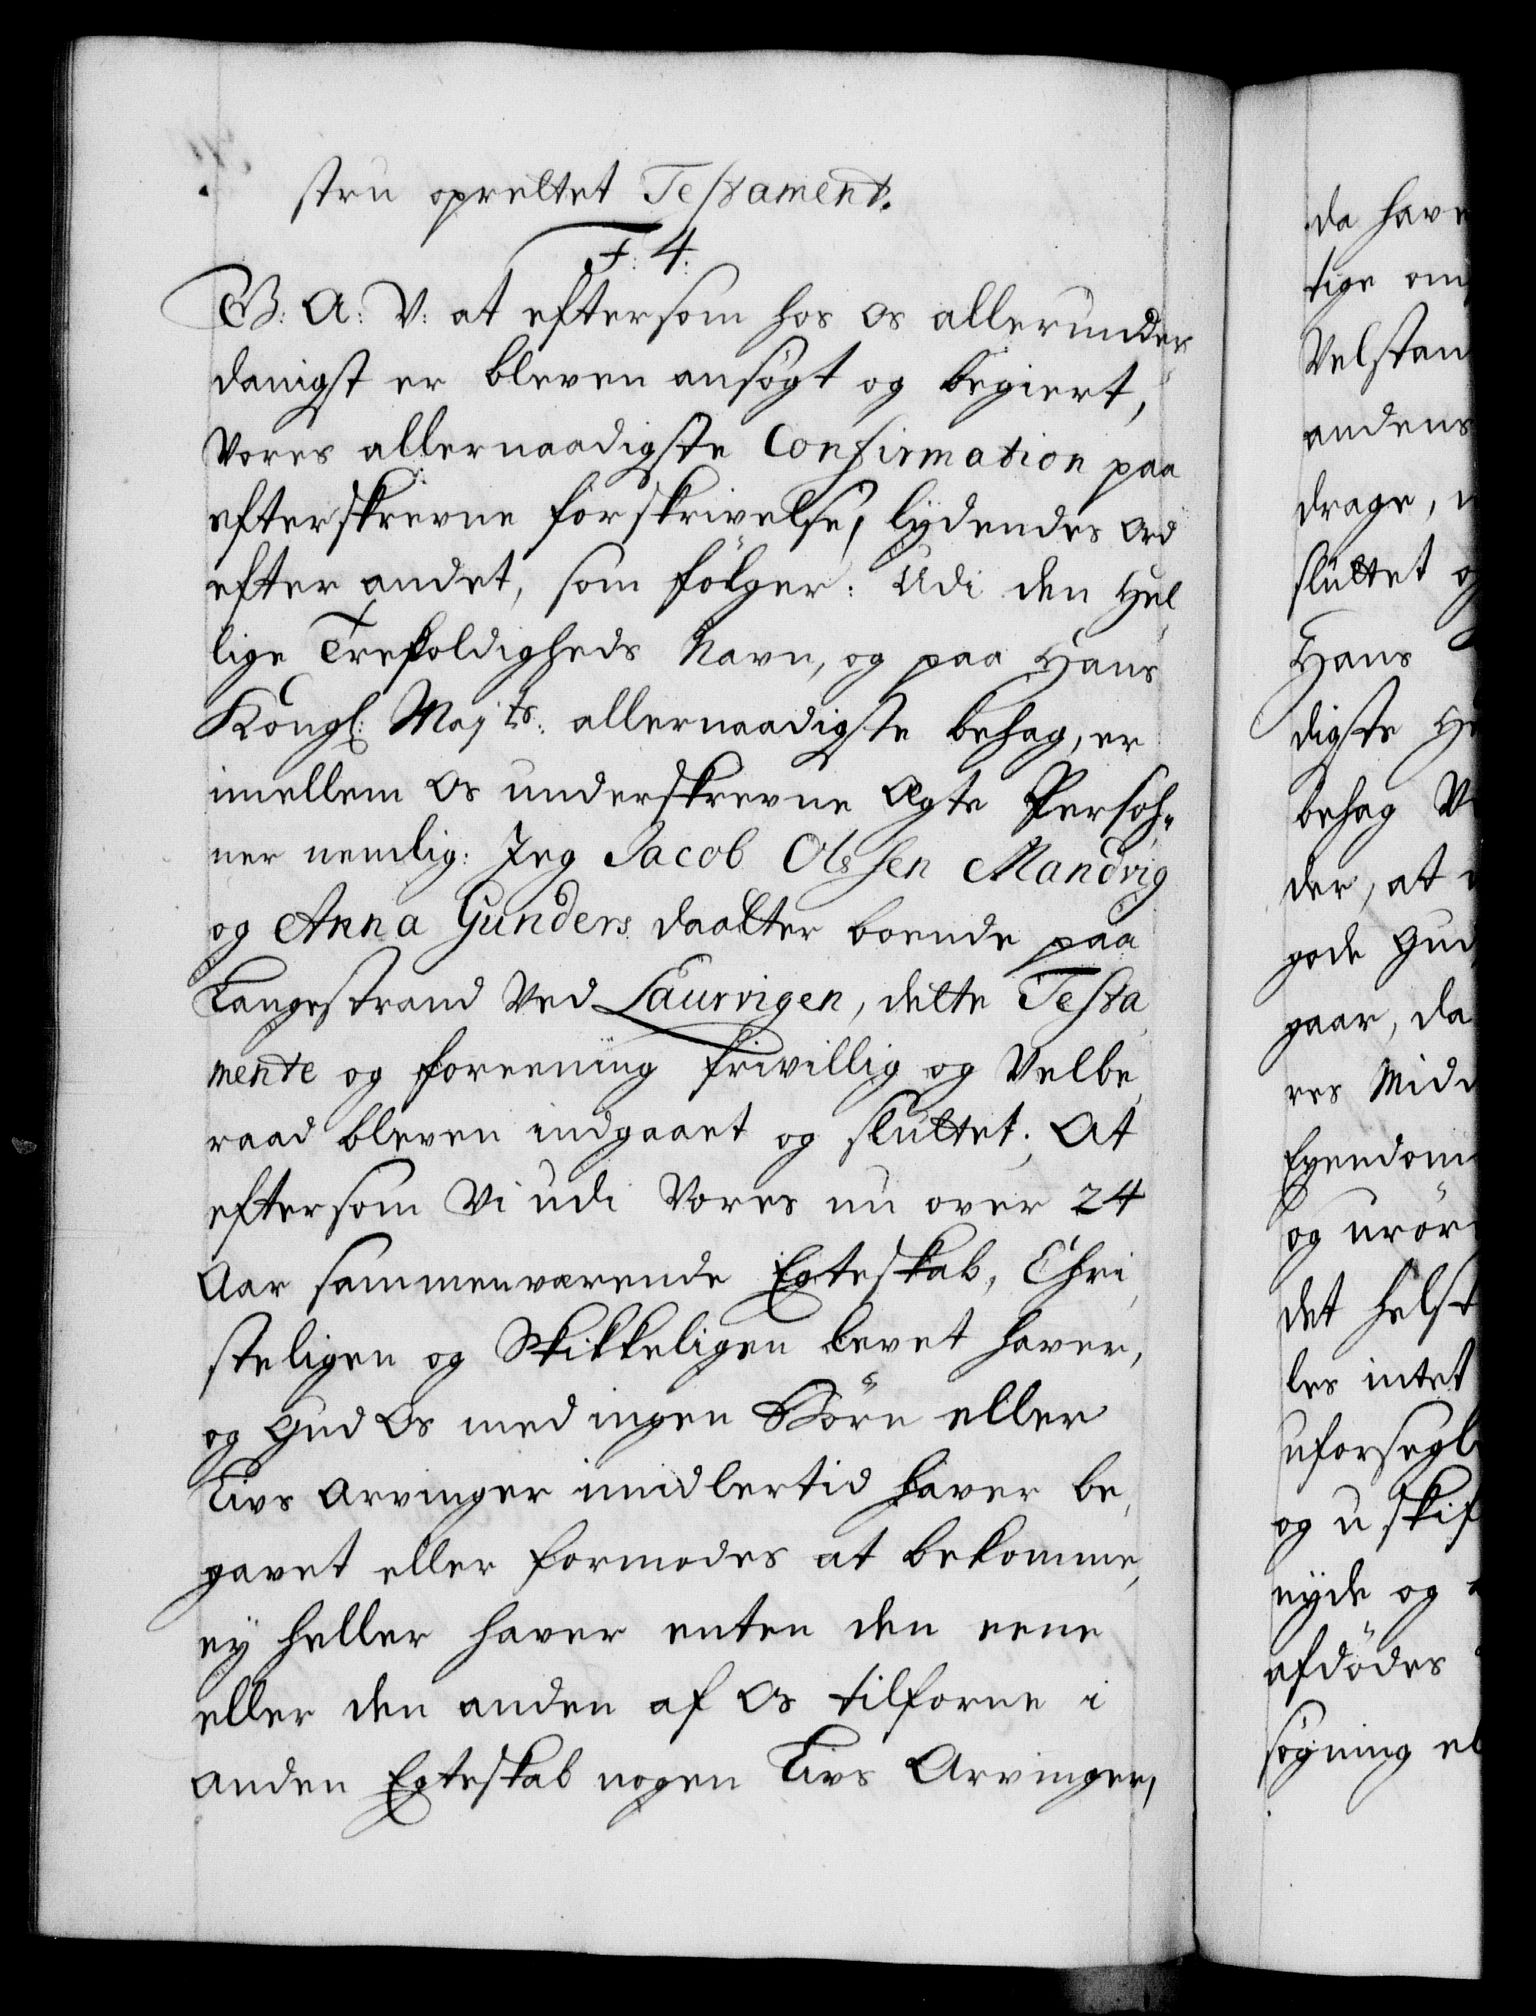 stru oprettet Testament.
F: 4.
G: A: V: at eftersom hos os allerunder
danigst er bleven ansøgt og begiert,
Vores allernaadigste Confirmation paa
efterskrevne forskrivelse, lydendes ord
efter andet, som følger: Udi den Hel
lige Trefoldigheds Navn, og paa Hans
Kongl: Maj.ts: allernaadigste behag, er
imellem os underskrevne Ægte Persoh-
ner nemlig: Jeg Jacob Olssen Mandvig
og Anna Gunders daatter boende paa
Langestrand ved Laurvigen, dette Testa
mente og foreening frivillig og Velbe
raad bleven indgaaet og sluttet. At
eftersom Vi udi Vores nu over 24
Aar sammenværende Egteskab, Chri
steligen og Skikkeligen levet haver,
og Gud Os med ingen Børn eller
Livs Arvinger imidlertid haver be
gavet eller formodes at bekomme,
ey heller haver enten den eene
eller den anden af Os tilforne i
anden Egteskab nogen Livs Arvinger,
da have
tige om
Velstan
andens
drage,
sluttet og
Hans
digste
behag
der, at
gode Gud
gaar, da
res Mid
Eyendom
og urør
det helst
les intet
uforsegl
og uskif
nyde og
afdødes
søgning el